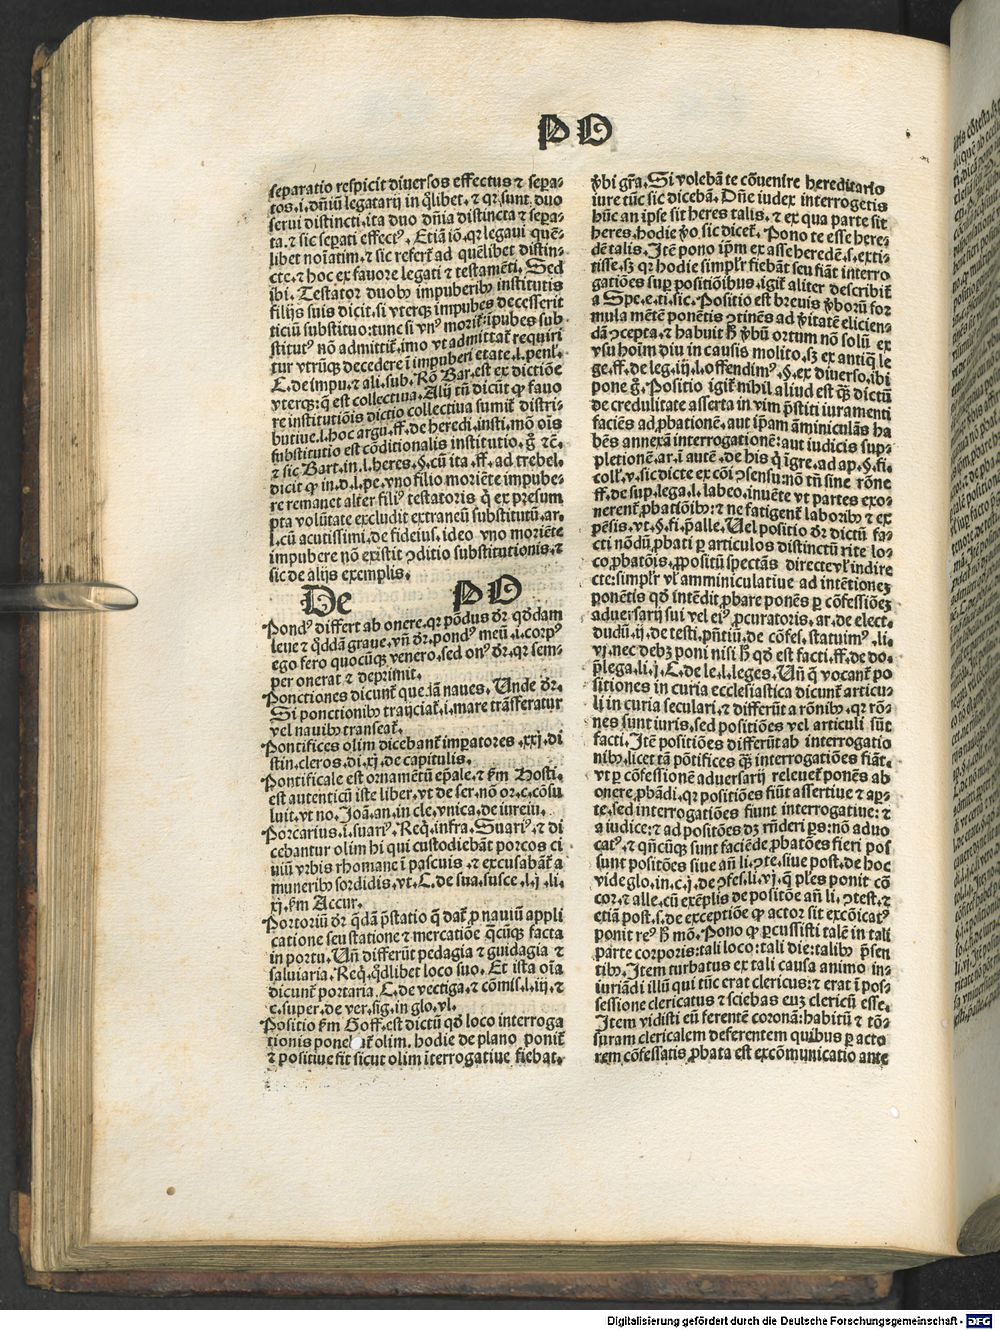 PO
separatio respicit diuersos effectus ⁊ sepa-
tos.i.dñiũ legatarij in q̃libet.⁊ qr sunt duo
serui distincti.ita duo dñia distincta ⁊ sepa-
ta.⁊ sic seꝑati effectꝰ. Etiã iõ.qr legaui quẽ-
libet noiatim.⁊ sic refert̃ ad quẽlibet distin-
cte.⁊ hoc ex fauore legati ⁊ testamẽti. Sed
ibi. Testator duobꝫ impuberibꝫ institutis
filijs suis dicit.si vterqꝫ impubes decesserit
ticiũ substituo:tunc si vnꝰ morit̃ ĩpubes sub
stitutꝰ nõ admittit̃.imo vt admittat̃ requiri
tur vtrũqꝫ decedere ĩ impuberi etate.l.penl̃.
C.de impu.⁊ ali.sub. Rõ Bar.est ex dictiõe
vterqꝫ:q̃ est collectiua. Alij tñ dicũt ꝙ fauo
re institutiõis dictio collectiua sumit̃ distri-
butiue.l.hoc argu.ff.de heredi.insti.mõ ois
substitutio est cõditionalis institutio.g̃ ⁊c̃.
⁊ sic Bart.in.l.heres.§.cũ ita.ff.ad trebel.
dicit ꝙ in.d.l.pe.vno filio moriẽte impube-
re remanet alter filiꝰ testatoris q̃ ex presum
pta volũtate excludit extraneũ substitutũ.ar.
l.cũ acutissimi.de fideiuss.ideo vno moriẽte
impubere nõ existit ꝯditio substitutionis.⁊
sic de alijs exemplis.
De PO
Pondꝰ differt ab onere.qr põdus dr̃ qõdam
leue ⁊ q̃ddã graue.vñ dr̃.pondꝰ meũ.i.corpꝰ
ego fero quocũqꝫ venero.sed onꝰ dr̃.qr sem-
per onerat ⁊ deprimit.
Ponctiones dicunt̃ que.iã naues. Unde dr̃.
Si ponctionibꝫ traijciat̃.i.mare trãsferatur
vel nauibꝫ transeat̃.
Pontifices olim dicebant̃ imꝑatores.xxj.di
stin.cleros.di.xj.de capitulis.
Pontificale est ornamẽtũ ep̃ale.⁊ km̃ Hosti.
est autenticũ iste liber.vt de ser.nõ or.c.cõsu
luit.vt no. Joã.an.in cle.vnica.de iureiu.
Porcarius.i.suariꝰ. Req̃.infra. Suariꝰ.⁊ di
cebantur olim hi qui custodiebãt porcos ci
uiũ vrbis rhomane ĩ pascuis.⁊ excusabãt̃ a
muneribꝫ sordidis.vt. C.de sua.susce.l.j.li.
xj.km̃ Accur.
Portoriũ dr̃ q̃dã p̃statio q̃ dat̃ ꝓ nauiũ appli
catione seu statione ⁊ mercatiõe q̃cũqꝫ facta
in portu. Uñ differũt pedagia ⁊ guidagia ⁊
saluiaria. Req̃.q̃dlibet loco suo. Et ista oĩa
dicunt̃ portaria. C.de vectiga.⁊ cõmis.l.iij.⁊
c.super.de ver.sig.in glo.vl.
Positio km̃ Goff.est dictũ qõ loco interroga
tionis ponebat̃ olim. hodie de plano ponit̃
⁊ positiue fit sicut olim ĩterrogatiue fiebat.
ṽbi gr̃a. Si volebã te cõuenire hereditario
iure tũc sic dicebã. Dñe iudex interrogetis
hũc an ipse sit heres talis.⁊ ex qua parte sit
heres.hodie ṽo sic dicet̃. Pono te esse here-
dẽ talis. Itẽ pono ip̃m ex asse heredẽ.s.exti-
tisse.sꝫ qr hodie simpl̃r fiebãt seu fiãt interro
gatiões suꝑ positiõibus.igit̃ aliter describit̃
a Spe.e.ti.sic. Positio est breuis ṽborũ for
mula mẽtẽ ponẽtis ꝯtinẽs ad ṽitatẽ elicien-
dã ꝯcepta.⁊ habuit h̃ ṽbũ ortum nõ solũ ex
vsu hoĩm diu in causis molito.sꝫ ex antiq̃ le
ge.ff.de leg.iij.l.offendimꝰ.§.ex diuerso.ibi
pone g̃. Positio igit̃ nihil aliud est q̃ꝫ dictũ
de credulitate asserta in vim p̃stiti iuramenti
faciẽs ad ꝓbationẽ.aut ip̃am ãminiculãs ha
bẽs annexã interrogationẽ:aut iudicis sup-
pletionẽ.ar.ĩ autẽ.de his q̃ ĩgre.ad ap.§.fi.
coll̃.v.sic dicte ex cõi ꝯsensu:nõ tñ sine rõne
ff.de sup.lega.l.labeo.inuẽte vt partes exo-
nerent̃ ꝓbatiõibꝫ:⁊ ne fatigent̃ laboribꝫ ⁊ ex
pẽsis.vt.§.fi.p̃alle. Uel positio dr̃ dictũ fa-
cti nõdũ ꝓbati ꝑ articulos distinctũ rite lo-
co ꝓbatõis.ꝓpositũ spectãs directe vl̃ indire
cte:simpl̃r vl̃ amminiculatiue ad intẽtionẽꝫ
ponẽtis qõ intẽdit ꝓbare ponẽs ꝑ cõfessiõeꝫ
aduersarij sui vel eiꝰ ꝓcuratoris.ar.de elect.
dudũ.ij.de testi.pñtiũ.de cõfes.statuimꝰ.li.
vj.nec debꝫ poni nisi h̃ qõ est facti.ff.de do.
p̃lega.li.j. C.de le.l.leges. Uñ q̃ vocant̃ po
sitiones in curia ecclesiastica dicunt̃ articu-
li in curia seculari.⁊ differũt a rõnibꝫ.qr rõ-
nes sunt iuris.sed positiões vel articuli sũt
facti. Itẽ positiões differũt ab interrogatio
nibꝫ.licet tã põtifices q̃ꝫ interrogatiões fiãt.
vt ꝑ cõfessionẽ aduersarij releuet̃ ponẽs ab
onere ꝓbãdi.qr positiões fiũt assertiue ⁊ aꝑ-
te.sed interrogatiões fiunt interrogatiue:⁊
a iudice:⁊ ad positões dꝫ rñderi ꝑs:nõ aduo
catꝰ.⁊ qñcũqꝫ sunt faciẽde ꝓbatões fieri pos
sunt positões siue añ li.ꝯte.siue post.de hoc
vide glo.in.c.j.de ꝯfes.li.vj.q̃ pl̃es ponit cõ
cor.⁊ alle.cũ exẽplis de positõe añ li.ꝯtest.⁊
etiã post.s.de exceptiõe ꝙ actor sit excõicatꝰ
ponit reꝰ h̃ mõ. Pono ꝙ ꝑcussisti talẽ in tali
parte corporis:tali loco:tali die:talibꝫ p̃sen
tibꝫ. Item turbatus ex tali causa animo in-
iuriãdi illũ qui tũc erat clericus:⁊ erat ĩ pos-
sessione clericatus ⁊ sciebas euꝫ clericũ esse.
Item vidisti eũ ferentẽ coronã:habitũ ⁊ tõ-
suram clericalem deferentem quibus ꝑ acto
rem cõfessatis ꝓbata est excõmunicatio ante
Digitalisierung gefördert durch die Deutsche Forschungsgemeinschaft - DFG